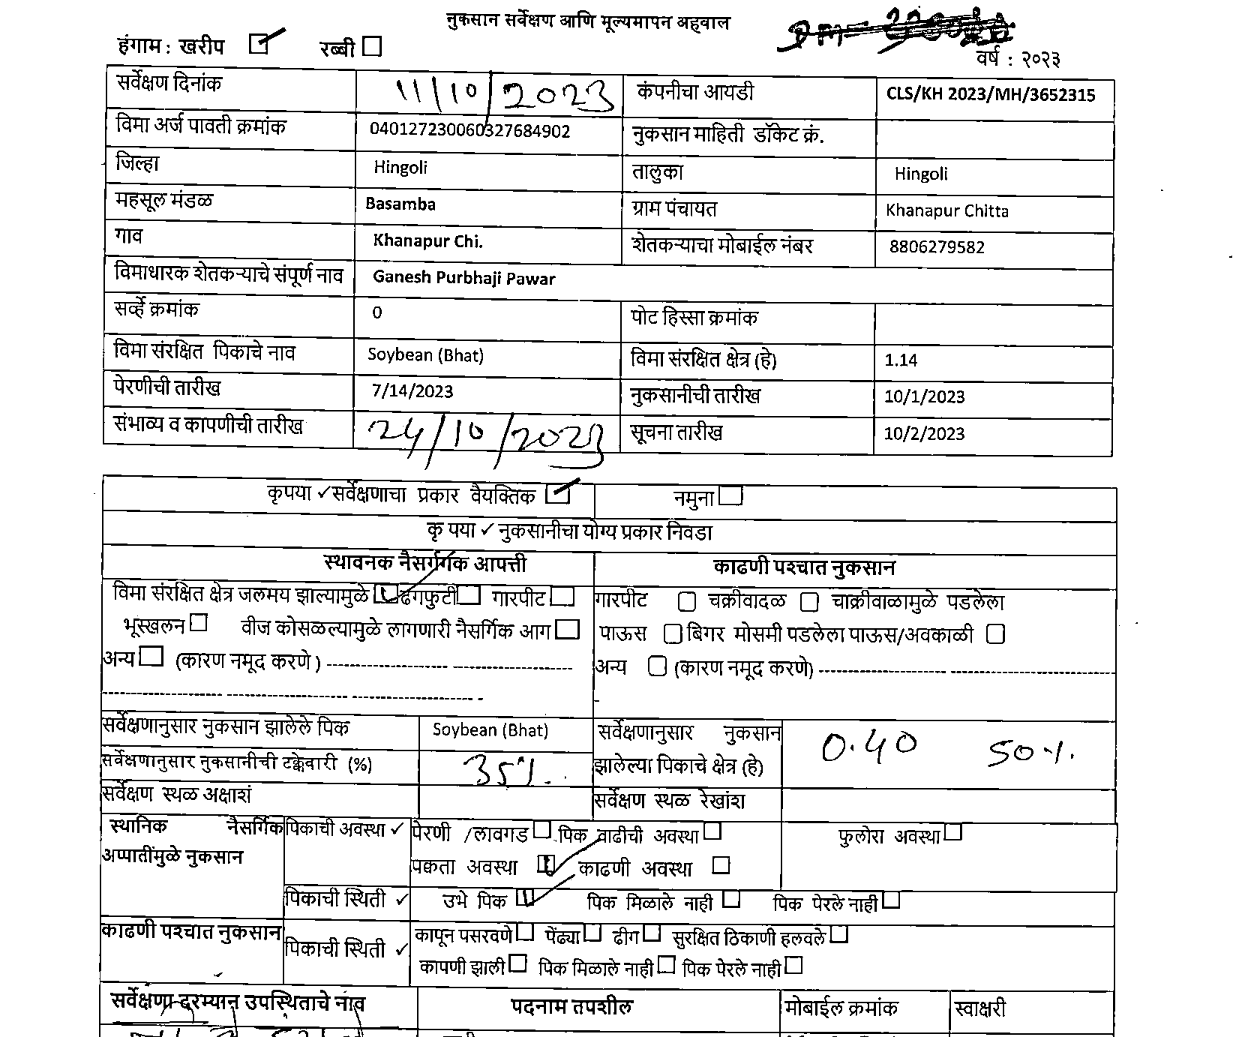 नुकसान सर्वेक्षण आणि मूल्यमापन अहवाल
हंगाम : खरीप रब्बी वर्ष : २०२३
सर्वेक्षण दिनांक 11/10/2023 कंपनीचा आयडी CLS/KH 2023/MH/3652315
विमा अर्ज पावती क्रमांक 040127230060327684902 नुकसान माहिती डॉकेट क्रं.
जिल्हा Hingoli तालुका Hingoli
महसूल मंडळ Basamba ग्राम पंचायत Khanapur Chitta
गाव Khanapur Chi. शेतकऱ्याचा मोबाईल नंबर 8806279582
विमाधारक शेतकऱ्याचे संपूर्ण नाव Ganesh Purbhaji Pawar
सर्व्हे क्रमांक 0 पोट हिस्सा क्रमांक
विमा संरक्षित पिकाचे नाव Soybean (Bhat) विमा संरक्षित क्षेत्र (हे) 1.14
पेरणीची तारीख 7/14/2023 नुकसानीची तारीख 10/1/2023
संभाव्य व कापणीची तारीख 24/10/2023 सूचना तारीख 10/2/2023
कृपया ✓सर्वेक्षणाचा प्रकार वैयक्तिक नमुना
कृ पया ✓ नुकसानीचा योग्य प्रकार निवडा
स्थावनक नैसर्गिक आपत्ती काढणी पश्चात नुकसान
विमा संरक्षित क्षेत्र जलमय झाल्यामुळे ढगफुटी गारपीट गारपीट चक्रीवादळ चाक्रीवाळामुके पडलेला
भूस्खलन वीज कोसळल्यामुळे लागणारी नैसर्गिक आग पाऊस बिगर मोसमी पडलेला पाऊस/अवकाळी
अन्य (कारण नमूद करणे ) ---------------------- अन्य (कारण नमूद करणे) ----------------------
सर्वेक्षणानुसार नुकसान झालेले पिक Soybean (Bhat) सर्वेक्षणानुसार नुकसान
झालेल्या पिकाचे क्षेत्र (हे) 0.40 50%.
सर्वेक्षणानुसार नुकसानीची टक्केवारी (%) 35%.
सर्वेक्षण स्थळ अक्षाशं सर्वेक्षण स्थळ रेखांश
स्थानिक नैसर्गिक पिकाची अवस्था ✓ पेरणी /लावगड पिक वाढीची अवस्था फुलोरा अवस्था
अप्पातींमुळे नुकसान पक्वता अवस्था काढणी अवस्था
पिकाची स्थिती ✓ उभे पिक पिक मिळाले नाही पिक पेरले नाही
काढणी पश्चात नुकसान पिकाची स्थिती ✓ कापून पसरवणे पेंढ्या ढीग सुरक्षित ठिकाणी हलवले
कापणी झाली पिक मिळाले नाही पिक पेरले नाही
सर्वेक्षणा दरम्यान उपस्थिताचे नाव पदनाम तपशील मोबाईल क्रमांक स्वाक्षरी